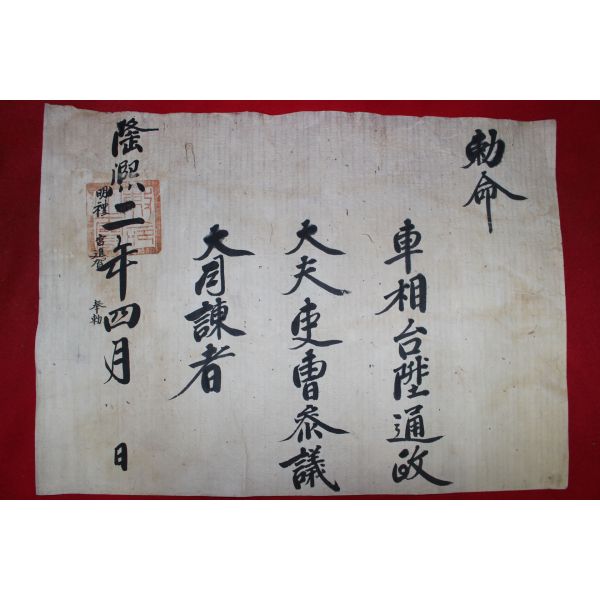 勅命
車相台陞通政
大夫吏曹叅議
大司諫者
隆熙二年四月 日
明禮宮進 奉勅